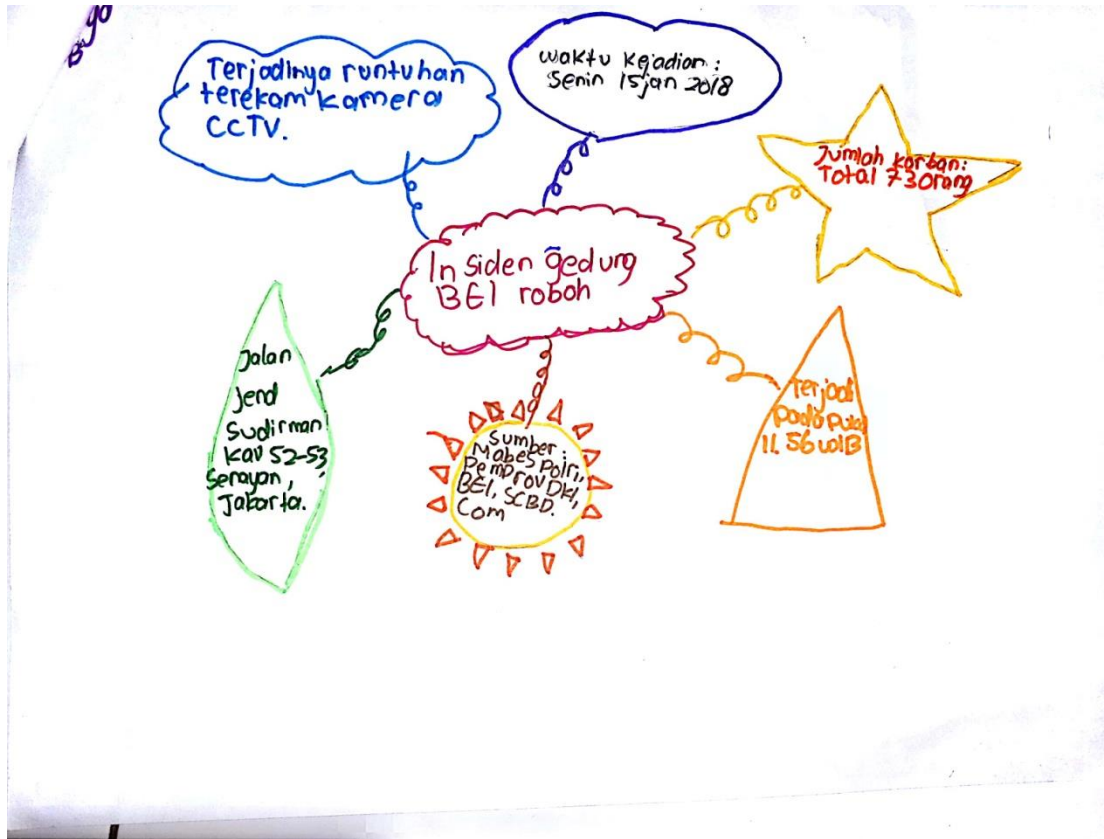 Terjadinya runtuhan
terekam kamera
CCTV.
waktu kejadian :
Senin 15 jan 2018
Jumlah korban:
Total 73 orang
Insiden gedung
BEI roboh
Jalan
Jend
Sudirman
Kav 52-53,
Senayan,
Jakarta.
Sumber :
Mabes Polri,
Pemprov DKI,
BEI, SCBD.
Com
Terjadi
pada pukul
11.56 WIB